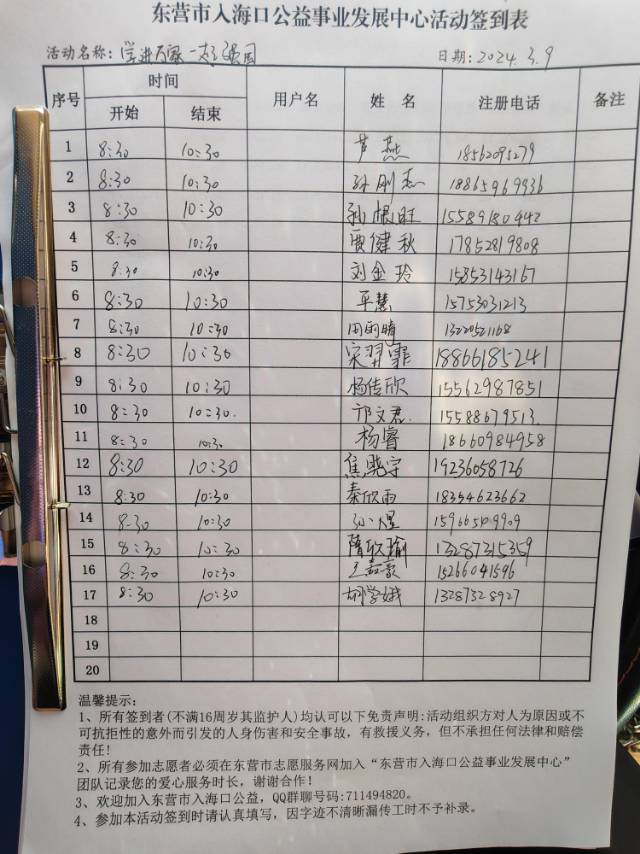 东营市入海口公益事业发展中心活动签到表
活动名称: 学进万家 日期: 2024.3.9
序号 时间 用户名 姓名 注册电话 备注
开始 结束
1 8:30 10:30 芦燕 18562095279
2 8:30 10:30 孙刚志 18865969936
3 8:30 10:30 孙根旺 15589180442
4 8:30 10:30 贾健秋 17852819808
5 8:30 10:30 刘金玲 15853143167
6 8:30 10:30 平慧 15753031213
7 8:30 10:30 田雨晴 13220521168
8 8:30 10:30 宋羿霏 18866185241
9 8:30 10:30 杨传欣 15562987851
10 8:30 10:30 邝文君 15588679513
11 8:30 10:30 杨睿 18660984958
12 8:30 10:30 焦晓宇 19236058726
13 8:30 10:30 秦欣雨 18354623662
14 8:30 10:30 孙煜 15966509909
15 8:30 10:30 隋欣瑜 13287315359
16 8:30 10:30 15266041596
17 8:30 10:30 胡学娥 13287328927
18
19
20
温馨提示:
1、所有签到者(不满16周岁其监护人)均认可以下免责声明:活动组织方对人为原因或不
可抗拒性的意外而引发的人身伤害和安全事故，有救援义务，但不承担任何法律和赔偿
责任!
2、所有参加志愿者必须在东营市志愿服务网加入“东营市入海口公益事业发展中心”
团队记录您的爱心服务时长，谢谢合作!
3、欢迎加入东营市入海口公益，QQ群聊号码:711494820。
4、参加本活动签到时请认真填写，因字迹不清晰漏传工时不予补录。